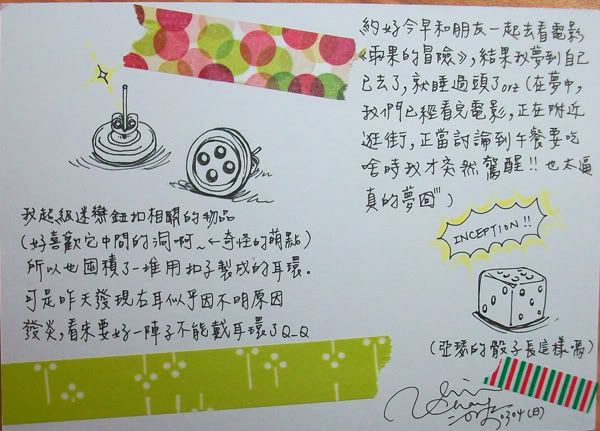 約好今早和朋友一起去看電影
《雨果的冒險》，結果我夢到自己
已去了，就睡過頭了orz（在夢中，
我們已經看完電影，正在附近
逛街，正當討論到午餐要吃
啥時我才突然驚醒!! 也太逼
真的夢囧"）
INCEPTION!!
（亞瑟的骰子長這樣嗎）
我超級迷戀鈕扣相關的物品
（好喜歡它中間的洞啊~←奇怪的萌點）
所以也囤積了一堆用扣子製成的耳環。
可是昨天發現右耳似乎因不明原因
發炎，看來要好一陣子不能戴耳環了Q_Q
0304(日)